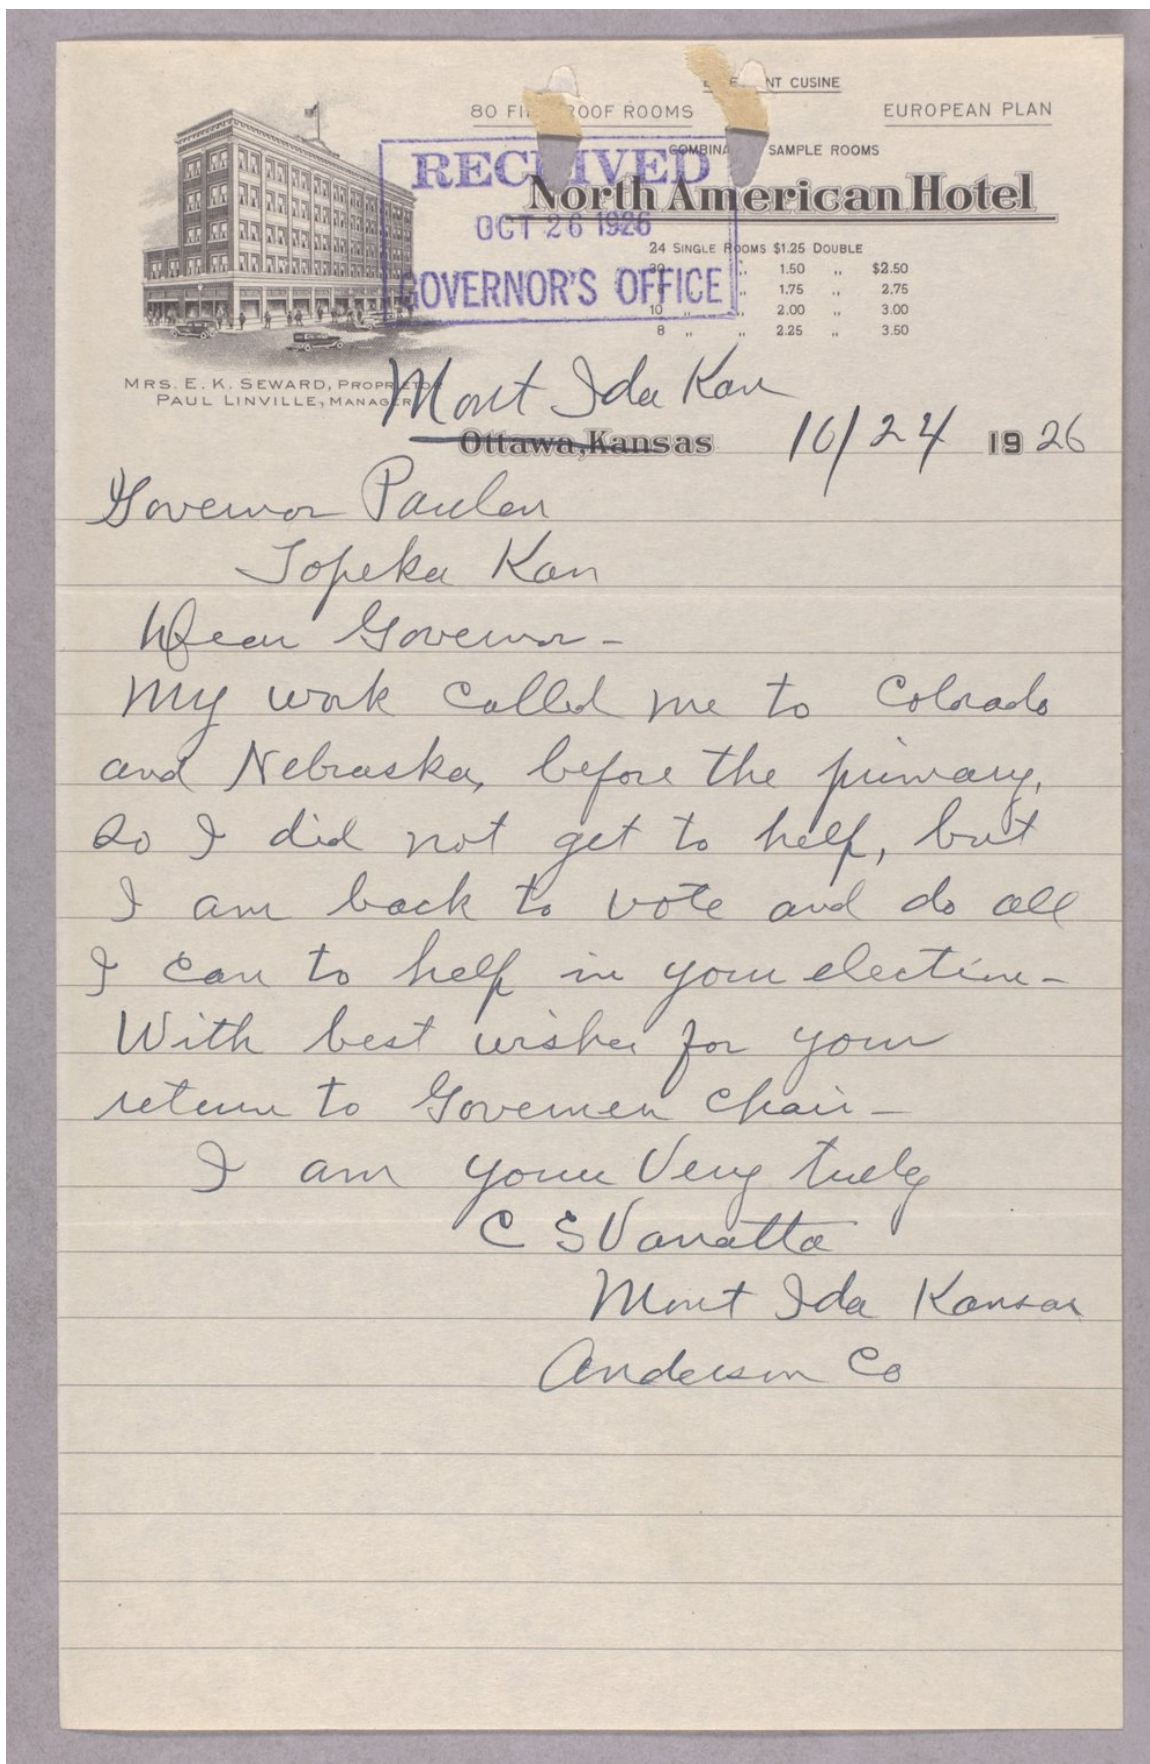 NT CUSINE
80 FI ROOF ROOMS
EUROPEAN PLAN
COMBINA SAMPLE ROOMS
RECEIVED
North American Hotel
OCT 26 1926
24 SINGLE ROOMS $1.25 DOUBLE
20 „ „ 1.50 „ $2.50
GOVERNOR'S OFFICE
„ 1.75 „ 2.75
10 „ „ 2.00 „ 3.00
8 „ „ 2.25 „ 3.50
MRS. E. K. SEWARD, PROPRIETOR
PAUL LINVILLE, MANAGER
Mont Ida Kan
Ottawa, Kansas 10/24 1926
Governor Paulen
Topeka Kan
Dear Governor -
My work called me to Colorado
and Nebraska, before the primary,
so I did not get to help, but
I am back to vote and do all
I can to help in your election -
With best wishes for your
return to Governer chair -
I am your Very truly
C S Vanatta
Mont Ida Kansas
Anderson Co